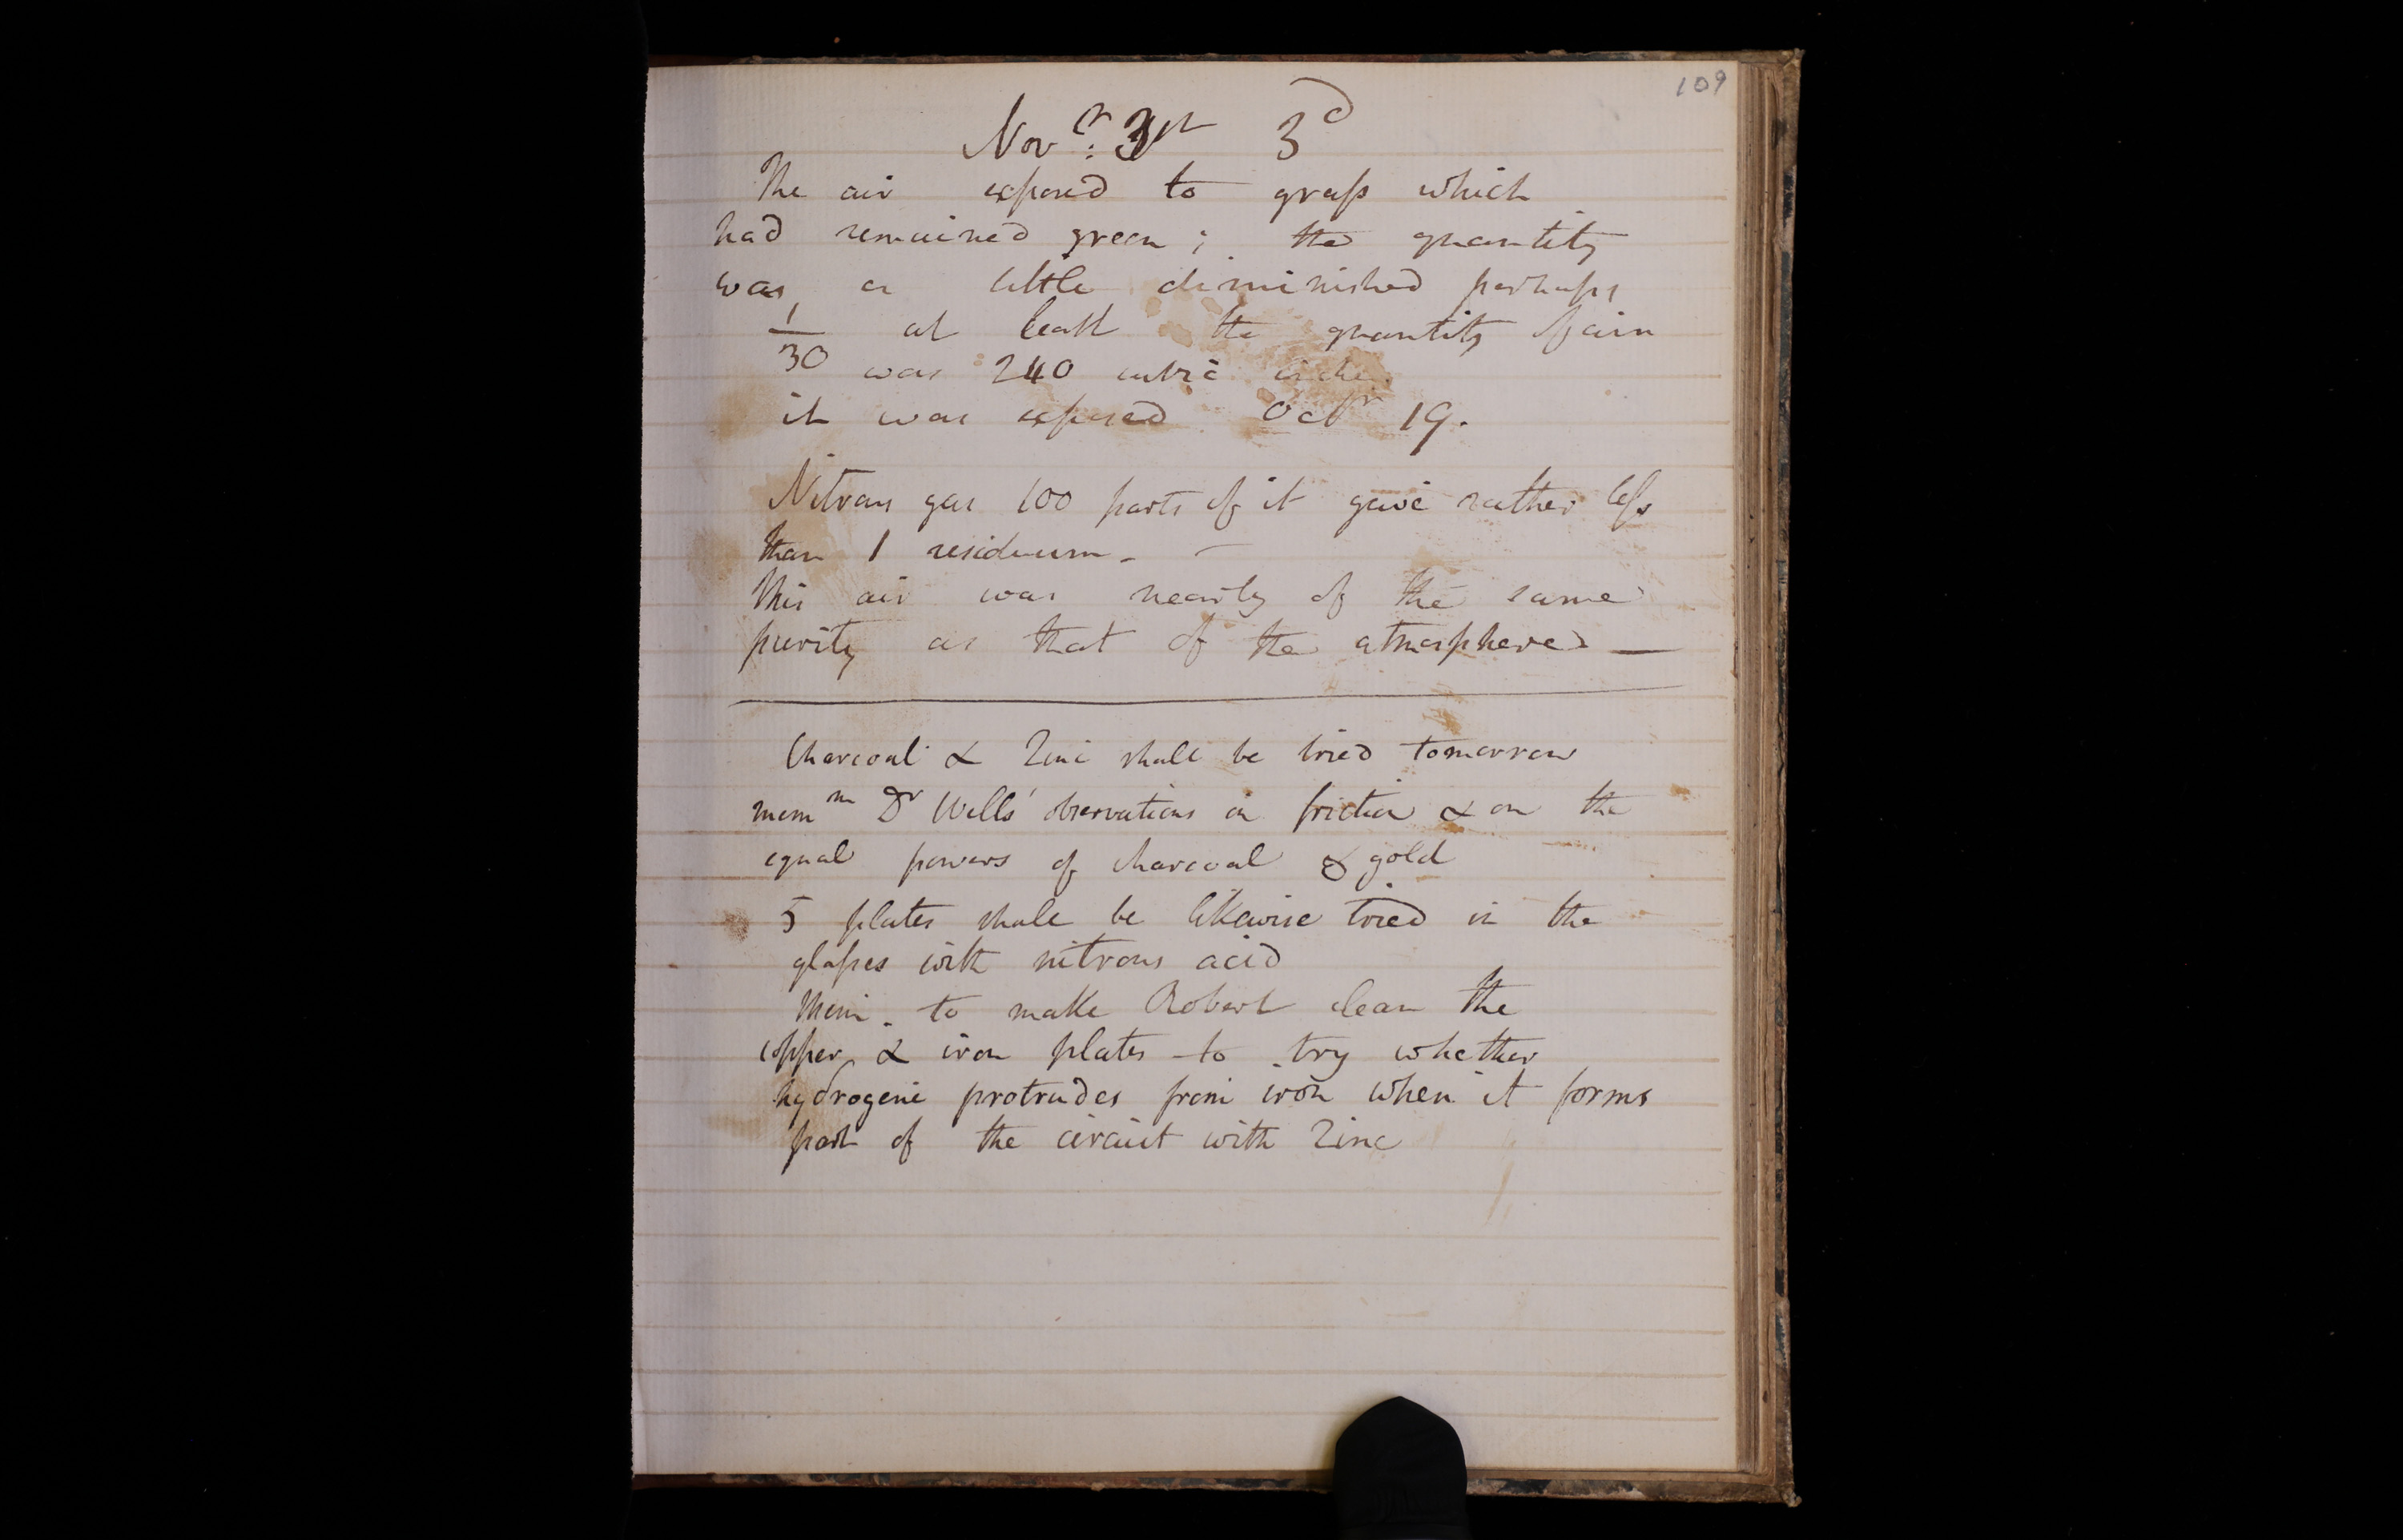 109
Novr: 3st 3d
The air exposed to grass which
had remained green; the quantity
was a little diminished perhaps
1/30 at least the quantity of air
was 240 cubic inches.
it was exposed Octr 19.
Nitrous gas 100 parts of it gave rather less
than 1 residuum. —
This air was nearly of the same
purity as that of the atmosphere —
Charcoal & Zinc shall be tried tomorrow
memm Dr Wells' observations on friction & on the
equal powers of charcoal & gold
5 plates shall be likewise tried in the
glasses with nitrous acid
Mem. to make Robert clean the
copper & iron plates to try whether
hydrogene protrudes from iron when it forms
part of the circuit with Zinc